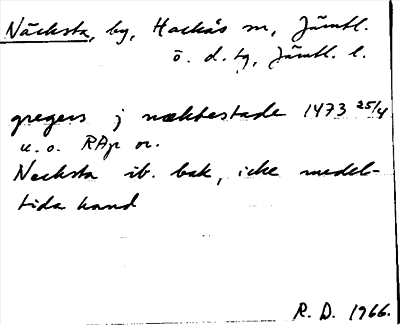 Näcksta, by, Hackås sn, Jämtl.
ö. d. tg, Jämtl. l.
gregers j næktestade 1473 25/4
u. o. RAp or.
Necksta ib. bak, icke medel-
tida hand
R. D. 1966.